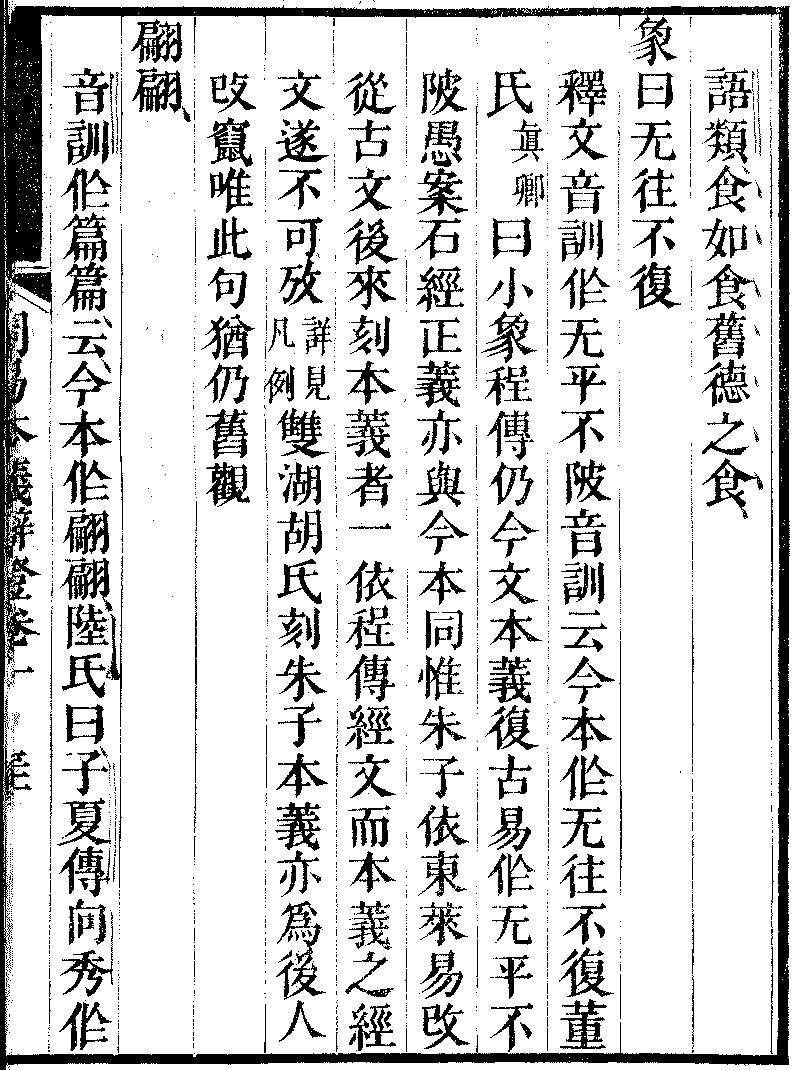 語類食如食舊德之食
象曰无往不復
釋文音訓作无平不陂音訓云今本作无往不復董
氏真卿曰小象程傳仍今文本義復古易作无平不
陂愚案石經正義亦與今本同惟朱子依東萊易改
從古文後來刻本義者一依程傳經文而本義之經
文遂不可攷詳見凡例雙湖胡氏刻朱子本義亦爲後人
改竄唯此句猶仍舊觀
翩翩
音訓作篇篇云今本作翩翩陸氏曰子夏傳向秀作
周易本義辯證卷一